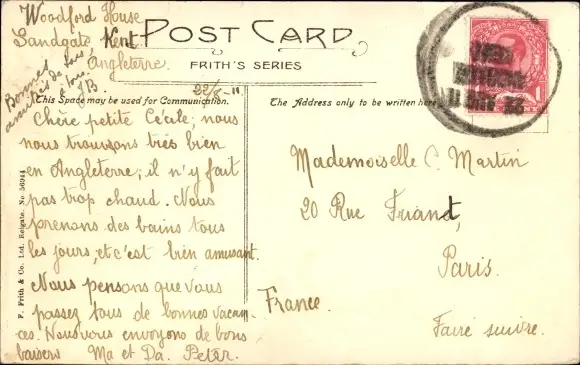 Woodford House
Sandgate, Kent,
Angleterre.
POST CARD
FRITH'S SERIES
Bonnes
amitiés de
22/8-11
This Space may be used for Communication.
The Address only to be written here
Chère petite Cécile; nous
nous trouvons très bien
en Angleterre; il n'y fait
pas trop chaud. Nous
prenons des bains tous
les jours, et c'est bien amusant.
Nous pensons que vous
passez tous de bonnes vacan-
ces. Nous vous envoyons de bons
baisers Ma et Da. Peter.
Mademoiselle C. Martin
20 Rue
Paris.
France.
Faire suivre.
F. Frith & Co. Ltd. Reigate. No 56944